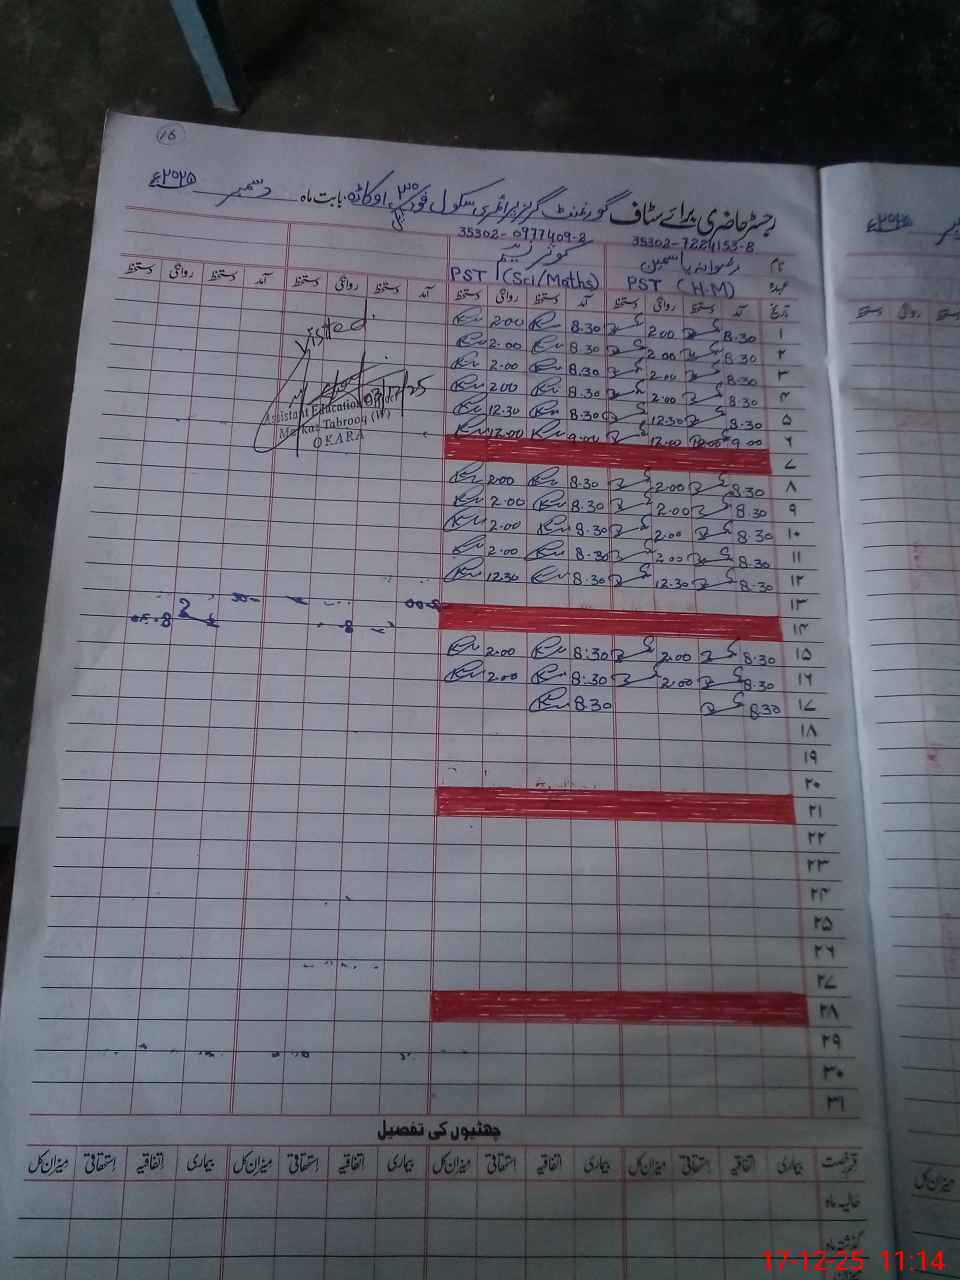 16
رجسٹر حاضری برائے سٹاف گورنمنٹ گرلز پرائمری سکول اوکاڑہ بابت ماہ دسمبر ۲۰۲۵ء
35302-7224153-8 35302-0977409-2
نام رضوانہ یاسمین کوثر نسیم
عہدہ PST (H.M) PST (Sci/Maths)
تاریخ آمد دستخط روانگی دستخط آمد دستخط روانگی دستخط آمد دستخط روانگی دستخط آمد دستخط روانگی دستخط
۱ 8.30 2.00 8.30 2.00
۲ 8.30 2.00 8.30 2.00
۳ 8.30 2.00 8.30 2.00
۴ 8.30 2.00 8.30 2.00
۵ 8.30 12.30 8.30 12.30
۶ 9.00 12.00 9.00 12.00
۷
۸ 8.30 2.00 8.30 2.00
۹ 8.30 2.00 8.30 2.00
۱۰ 8.30 2.00 8.30 2.00
۱۱ 8.30 2.00 8.30 2.00
۱۲ 8.30 12.30 8.30 12.30
۱۳
۱۴
۱۵ 8.30 2.00 8:30 2.00
۱۶ 8.30 2.00 8:30 2.00
۱۷ 8.30 8.30
۱۸
۱۹
۲۰
۲۱
۲۲
۲۳
۲۴
۲۵
۲۶
۲۷
۲۸
۲۹
۳۰
۳۱
Visited
Assistant Education Officer
Markaz Tabrooq (W)
OKARA
چھٹیوں کی تفصیل
قسم رخصت بیماری اتفاقیہ استحقاقی میزان کل بیماری اتفاقیہ استحقاقی میزان کل بیماری اتفاقیہ استحقاقی میزان کل بیماری اتفاقیہ استحقاقی میزان کل
حالیہ ماہ
گذشتہ ماہ
میزان کل
17-12-25 11:14